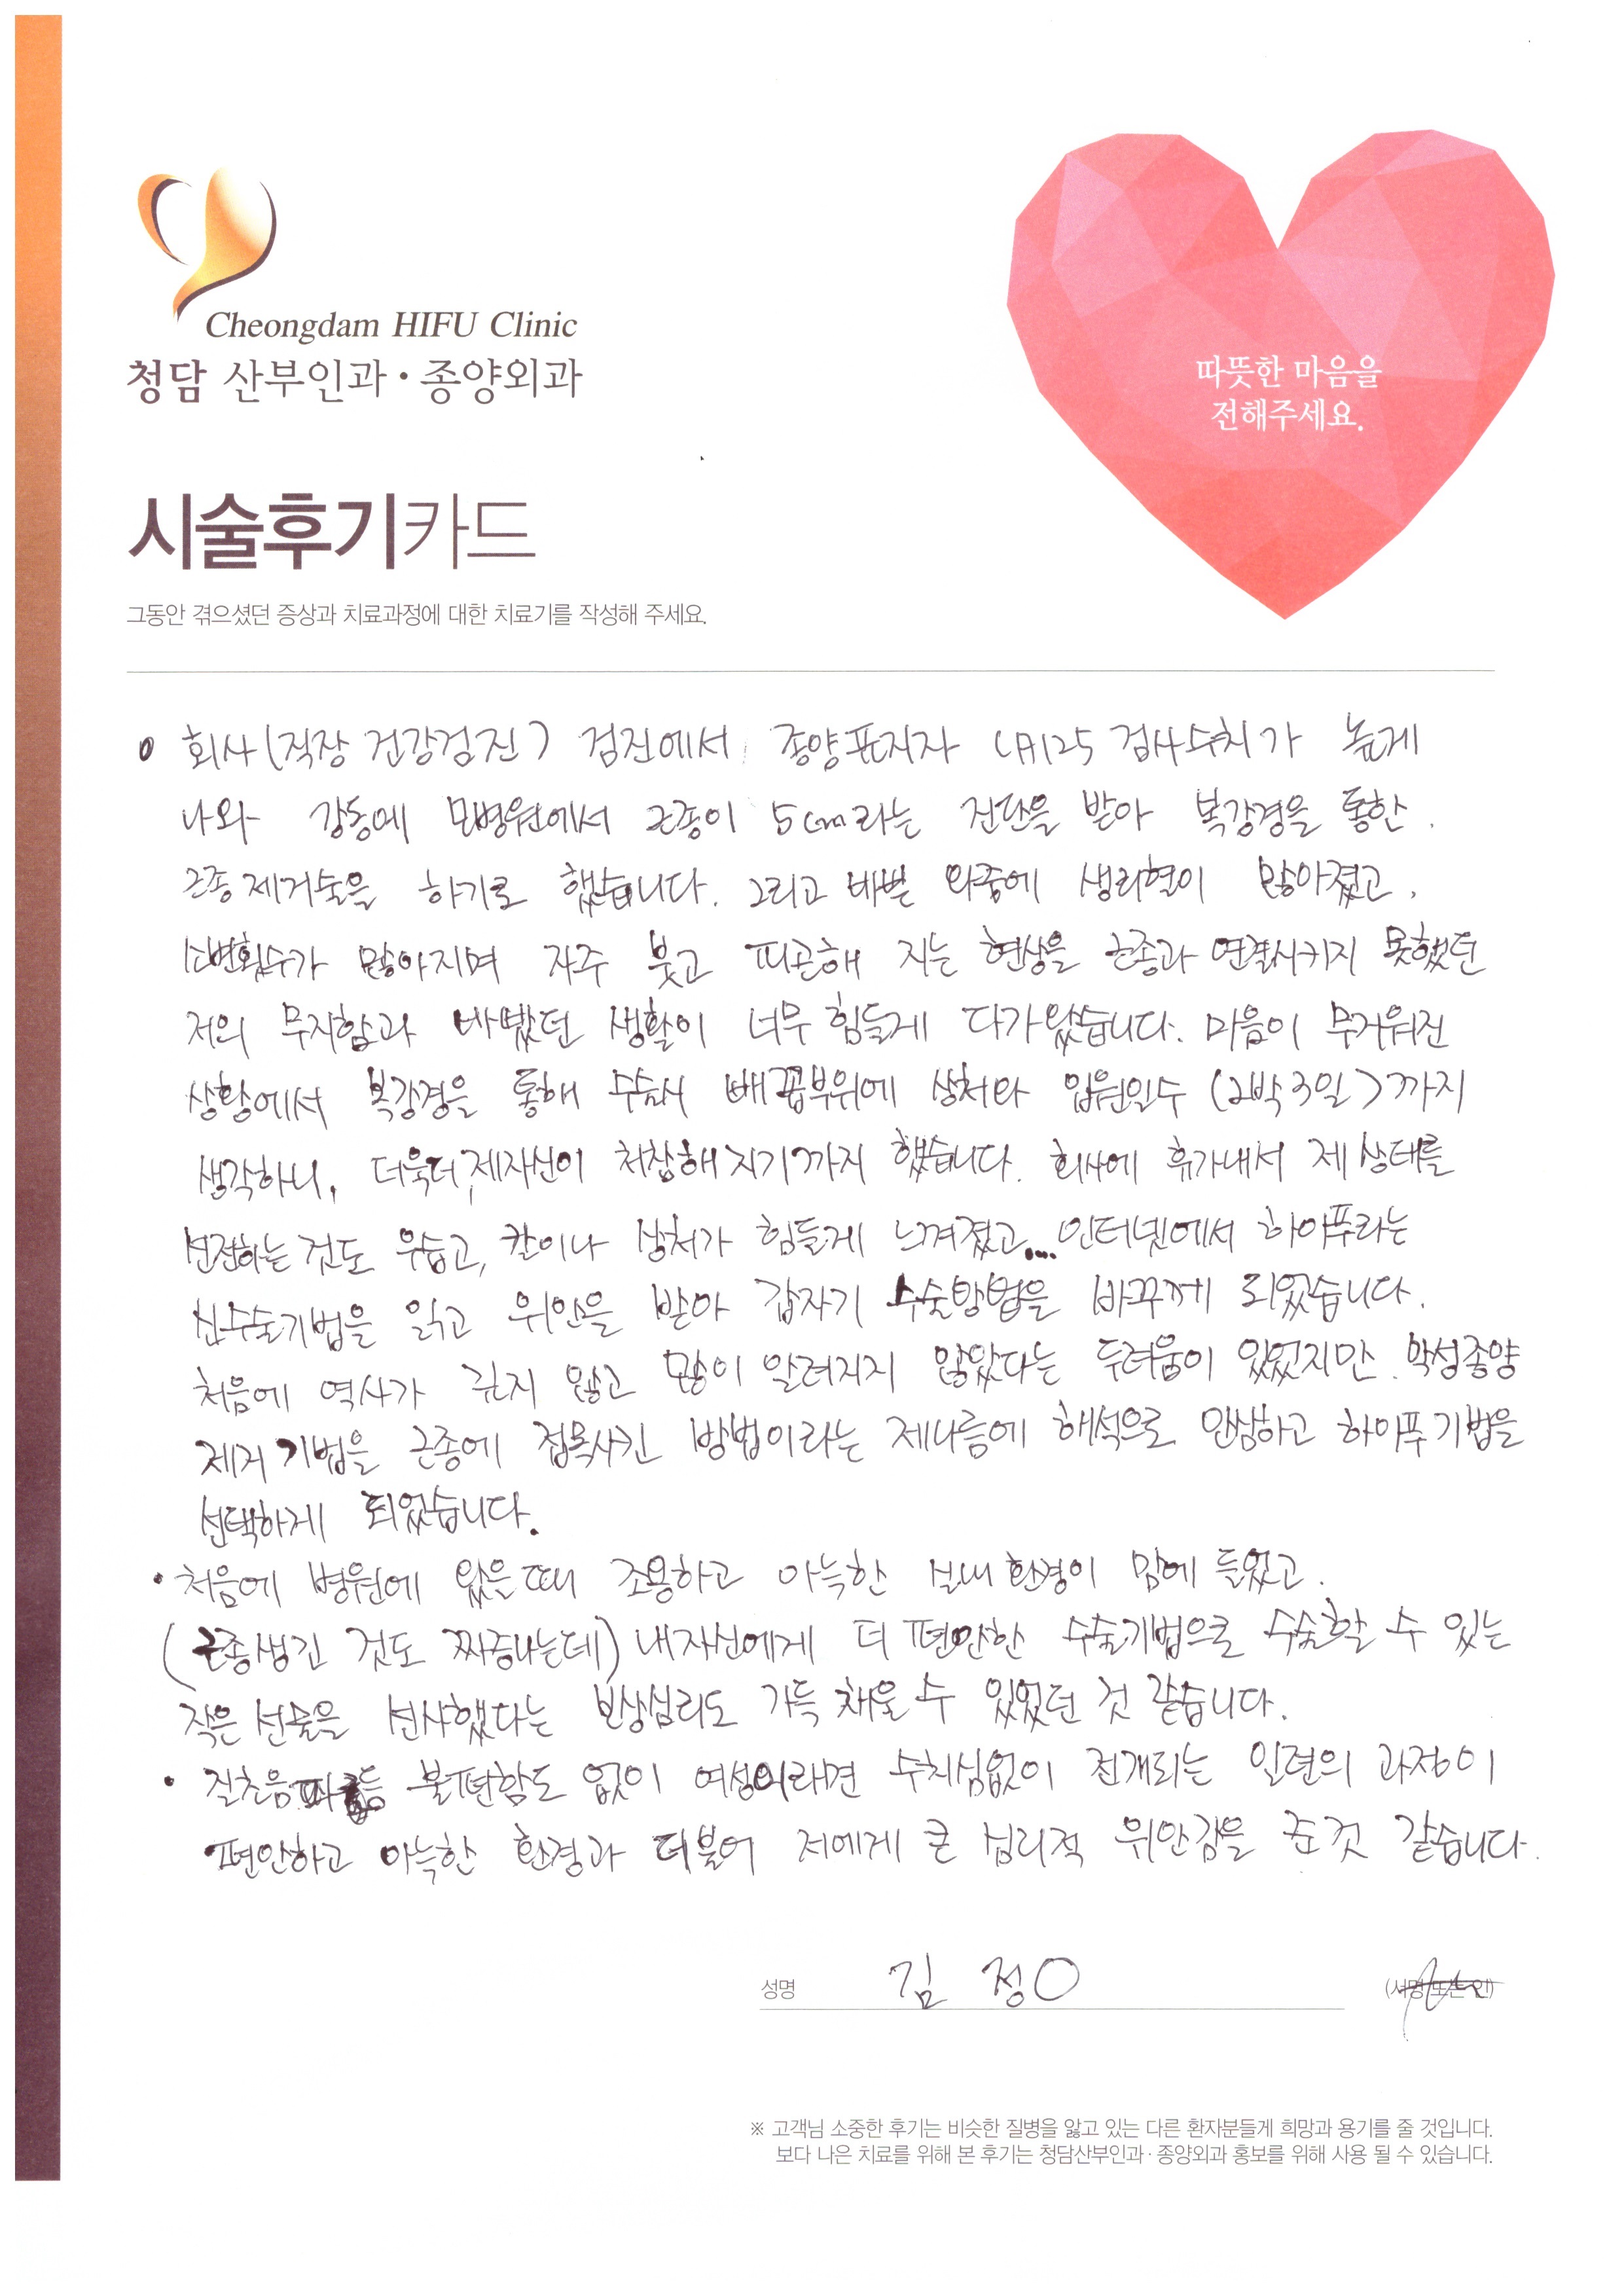 Cheongdam HIFU Clinic
청담 산부인과·종양외과
따뜻한 마음을
전해주세요.
시술후기카드
그동안 겪으셨던 증상과 치료과정에 대한 치료기를 작성해 주세요.
회사(직장 건강검진) 검진에서 종양표지자 CA125 검사수치가 높게
나와 강동에 모병원에서 근종이 5cm라는 진단을 받아 복강경을 통한
근종제거술을 하기로 했습니다. 그리고 바쁜 와중에 생리혈이 많아졌고,
소변횟수가 많아지며 자주 붓고 피곤해 지는 현상을 근종과 연결시키지 못했던
저의 무지함과 바빴던 생활이 너무 힘들게 다가왔습니다. 마음이 무거워진
상황에서 복강경을 통해 수술시 배꼽부위에 상처와 입원일수 (2박3일)까지
생각하니, 더욱더 제자신이 처참해지기까지 했습니다. 회사에 휴가내서 제 상태를
선전하는 것도 우습고, 칼이나 상처가 힘들게 느껴졌고.... 인터넷에서 하이푸라는
신수술기법을 읽고 위안을 받아 갑자기 수술방법을 바꾸게 되었습니다.
처음에 역사가 깊지 않고 많이 알려지지 않았다는 두려움이 있었지만. 악성종양
제거 기법을 근종에 접목시킨 방법이라는 제나름에 해석으로 안심하고 하이푸기법을
선택하게 되었습니다.
• 처음에 병원에 왔을때 조용하고 아늑한 실내환경이 맘에 들었고.
(근종생긴 것도 짜증나는데) 내자신에게 더 편안한 수술기법으로 수술할 수 있는
작은 선물을 선사했다는 보상심리도 가득 채울 수 있었던 것 같습니다.
• 질초음파 등 불편함도 없이 여성이라면 수치심없이 전개되는 일련의 과정이
편안하고 아늑한 환경과 더불어 저에게 큰 심리적 위안감을 준것 같습니다.
성명 김 정○ (서명 또는 인)
※ 고객님 소중한 후기는 비슷한 질병을 앓고 있는 다른 환자분들게 희망과 용기를 줄 것입니다.
보다 나은 치료를 위해 본 후기는 청담산부인과·종양외과 홍보를 위해 사용 될 수 있습니다.